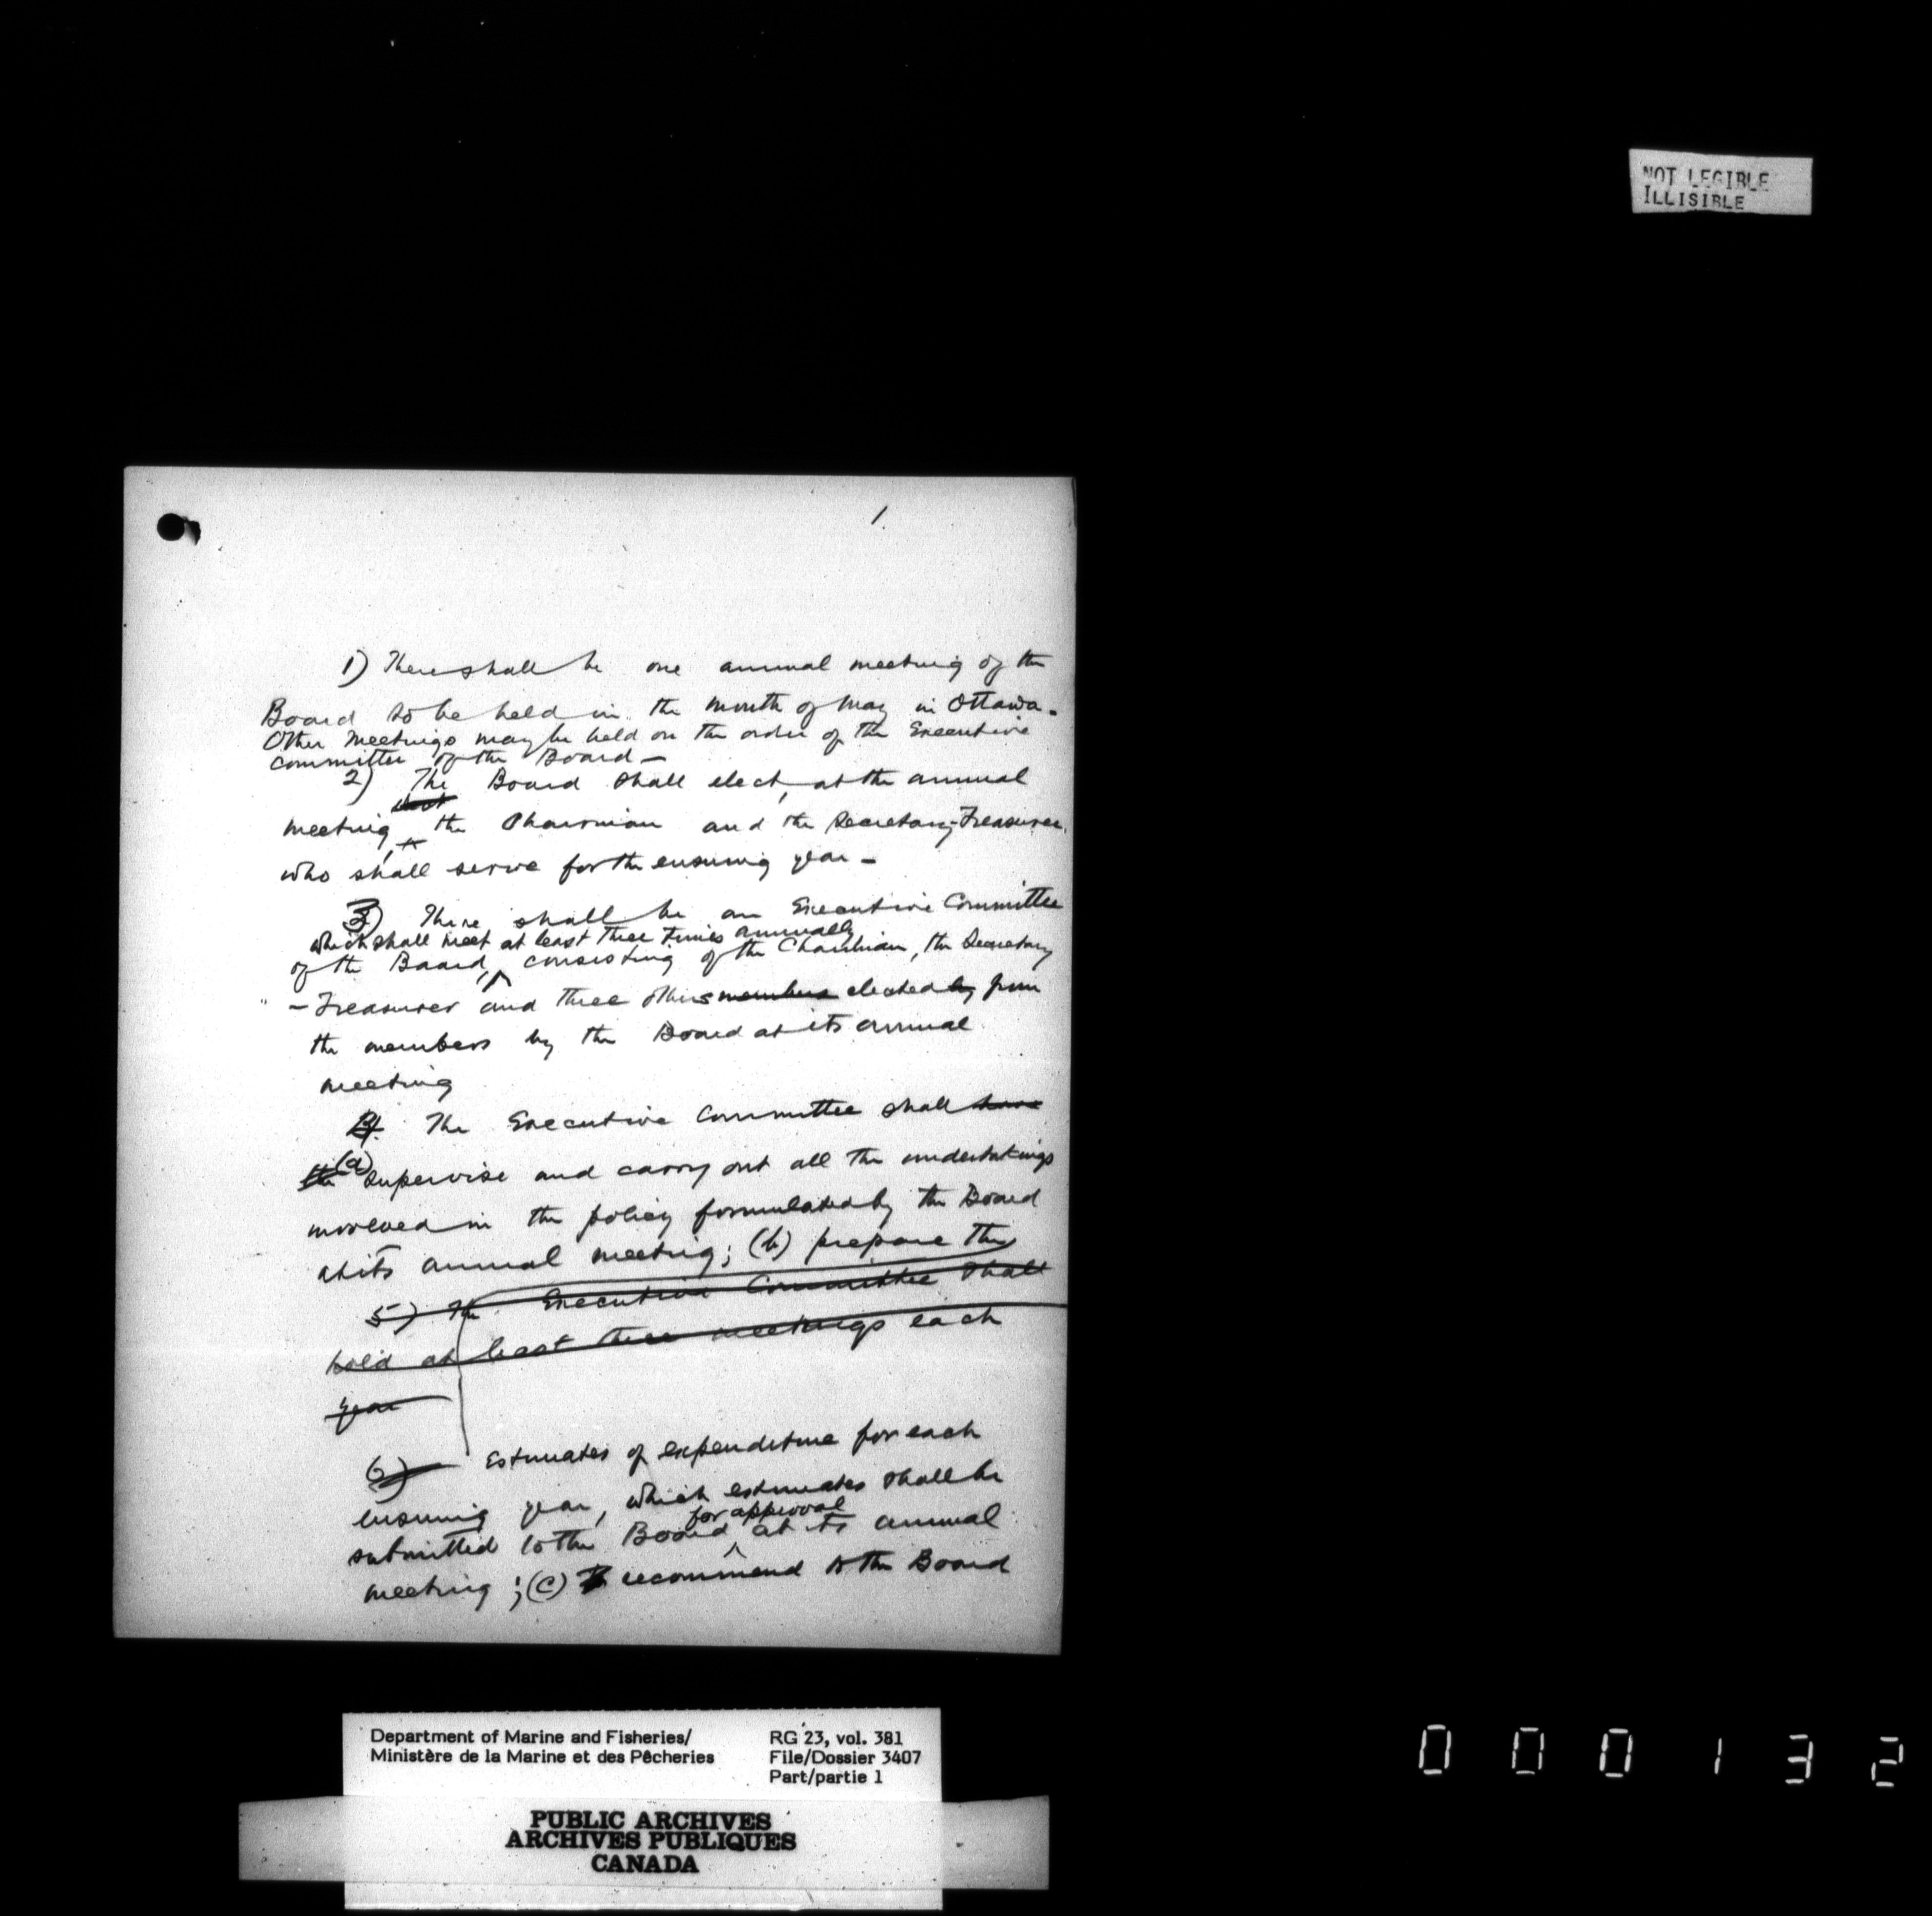 NOT LEGIBLE
ILLISIBLE
1.
1) There shall be one annual meeting of the
Board to be held in the month of May in Ottawa -
Other meetings may be held on the order of the Executive
committee of the Board -
2) The Board shall elect, at the annual
meeting, the Chairman and the Secretary-Treasurer,
who shall serve for the ensuing year -
3) There shall be an Executive Committee
which shall meet at least three times annually
of the Board, consisting of the Chairman, the Secretary
- Treasurer and three others members elected by from
the members by the Board at its annual
meeting
4. The Executive Committee shall have
the (a) supervise and carry out all the undertakings
involved in the policy formulated by the Board
at its annual meeting; (b) prepare the
5) The Executive Committee shall
hold at least three meetings each
year
6) Estimates of expenditure for each
ensuing year, which estimates shall be
for approval
submitted to the Board at its annual
meeting; (c) recommend to the Board
Department of Marine and Fisheries/
Ministère de la Marine et des Pêcheries
RG 23, vol. 381
File/Dossier 3407
Part/partie 1
PUBLIC ARCHIVES
ARCHIVES PUBLIQUES
CANADA
0 0 0 1 3 2